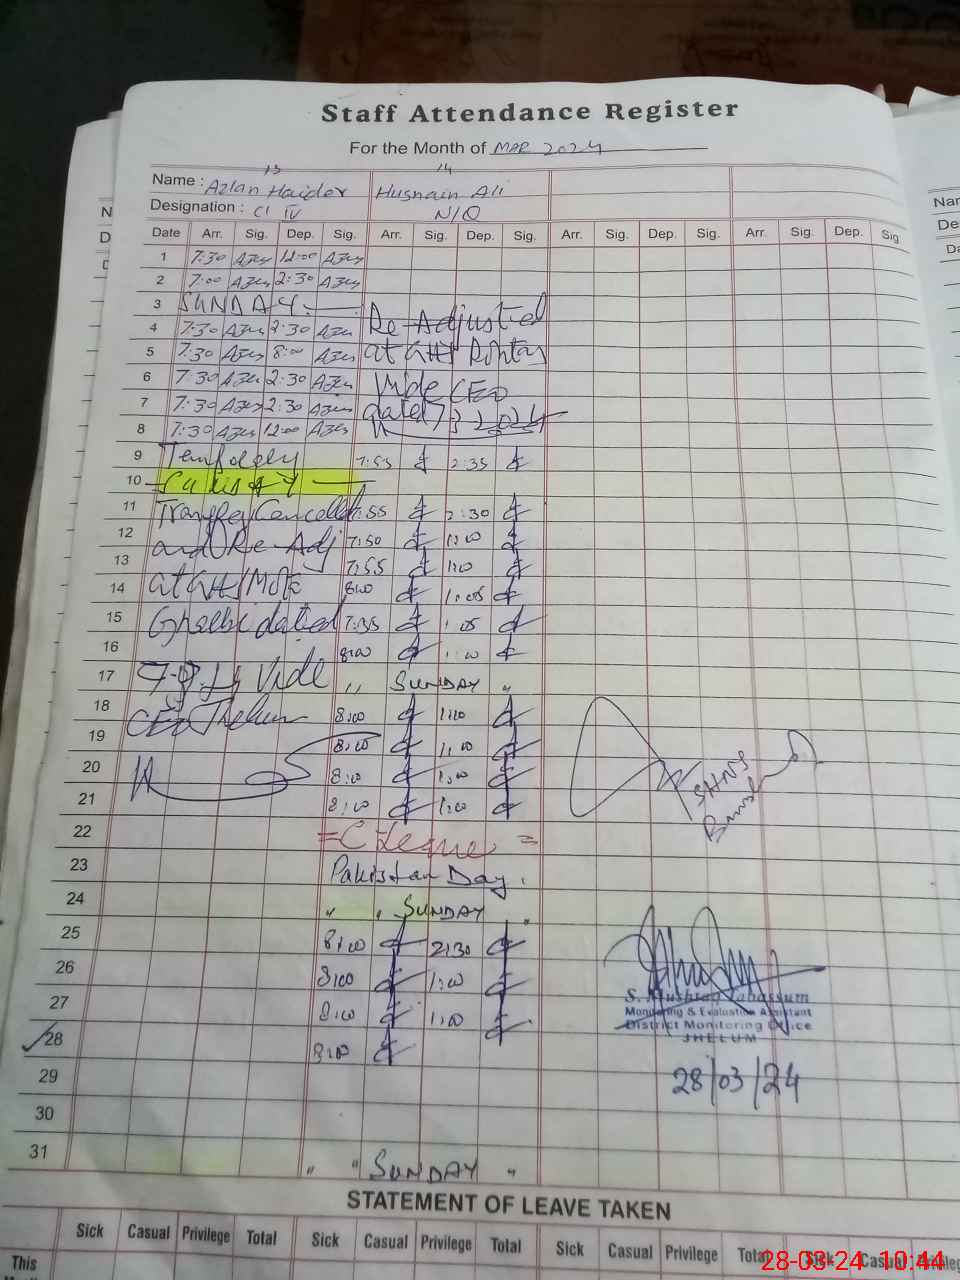 Staff Attendance Register
For the Month of MAR 2024
13 14
Name : Azlan Haider Husnain Ali
Designation : Cl IV N/Q
Date Arr. Sig. Dep. Sig. Arr. Sig. Dep. Sig. Arr. Sig. Dep. Sig. Arr. Sig. Dep. Sig
1 7:30 12:00
2 7:00 2:30
3 SUNDAY
4 7:30 2:30 Re-Adjusted
5 7:30 8:00 at GHS
6 7:30 2:30 Vide CEO
7 7:30 2:30 dated 7 3 2024
8 7:30 12:00
9 7:55 2:35
10
11 Transfer Cancelled 7:55 2:30
12 and Re-Adj 7:50 1:00
13 7:55 1:00
14 at GHS 8:00 1:05
15 dated 7:55 1:05
16 8:00 1:00
17 Vide " SUNDAY "
18 CEO Jhelum 8:00 1:10
19 8:00 1:00
20 8:00 1:00
21 8:00 1:00
22 = C Leave =
23 Pakistan Day.
24 " " SUNDAY "
25 8:00 2:30
26 8:00 1:00
27 8:00 1:00
28 8:00
S. Mushtaq Tabassum
Monitoring & Evaluation Assistant
District Monitoring Office
JHELUM
28/03/24
29
30
31 " " SUNDAY "
STATEMENT OF LEAVE TAKEN
Sick Casual Privilege Total Sick Casual Privilege Total Sick Casual Privilege Total Sick Casual
This
28-03-24 10:44